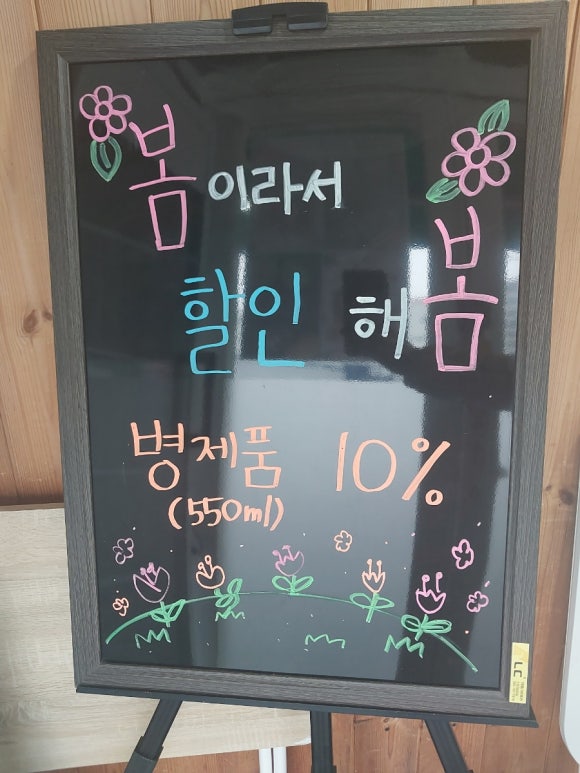 봄이라서
할인 해봄
병제품 10%
(550ml)
LC